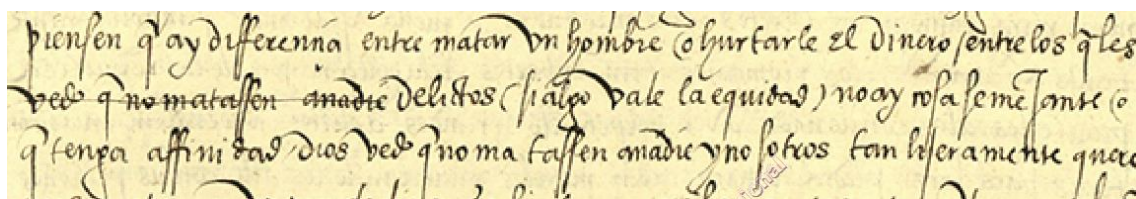 piensen q̃ ay differencia entre matar vn hombre / o hurtarle El dinero / entre los q̃ les
vedo q̃ no matassen anadie Delictos (si algo vale la equidad) no ay cosa semeJante / o
q̃ tenga affinidad / Dios vedo q̃ no matassen anadie y nosotros tan ligeramente